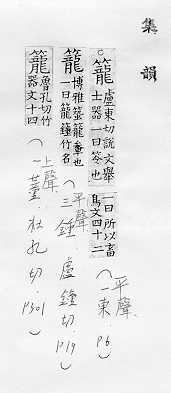 集韻
籠 盧東切說文舉土器一曰笭也 一曰所以畜鳥文四十二
(平聲.一東.P6)
籠 博雅筌籠䇬也一曰籠鐘竹名
(平聲.三鍾.盧鐘切.P19)
籠 魯孔切竹器文十四
(上聲.一董.杜孔切.P301)